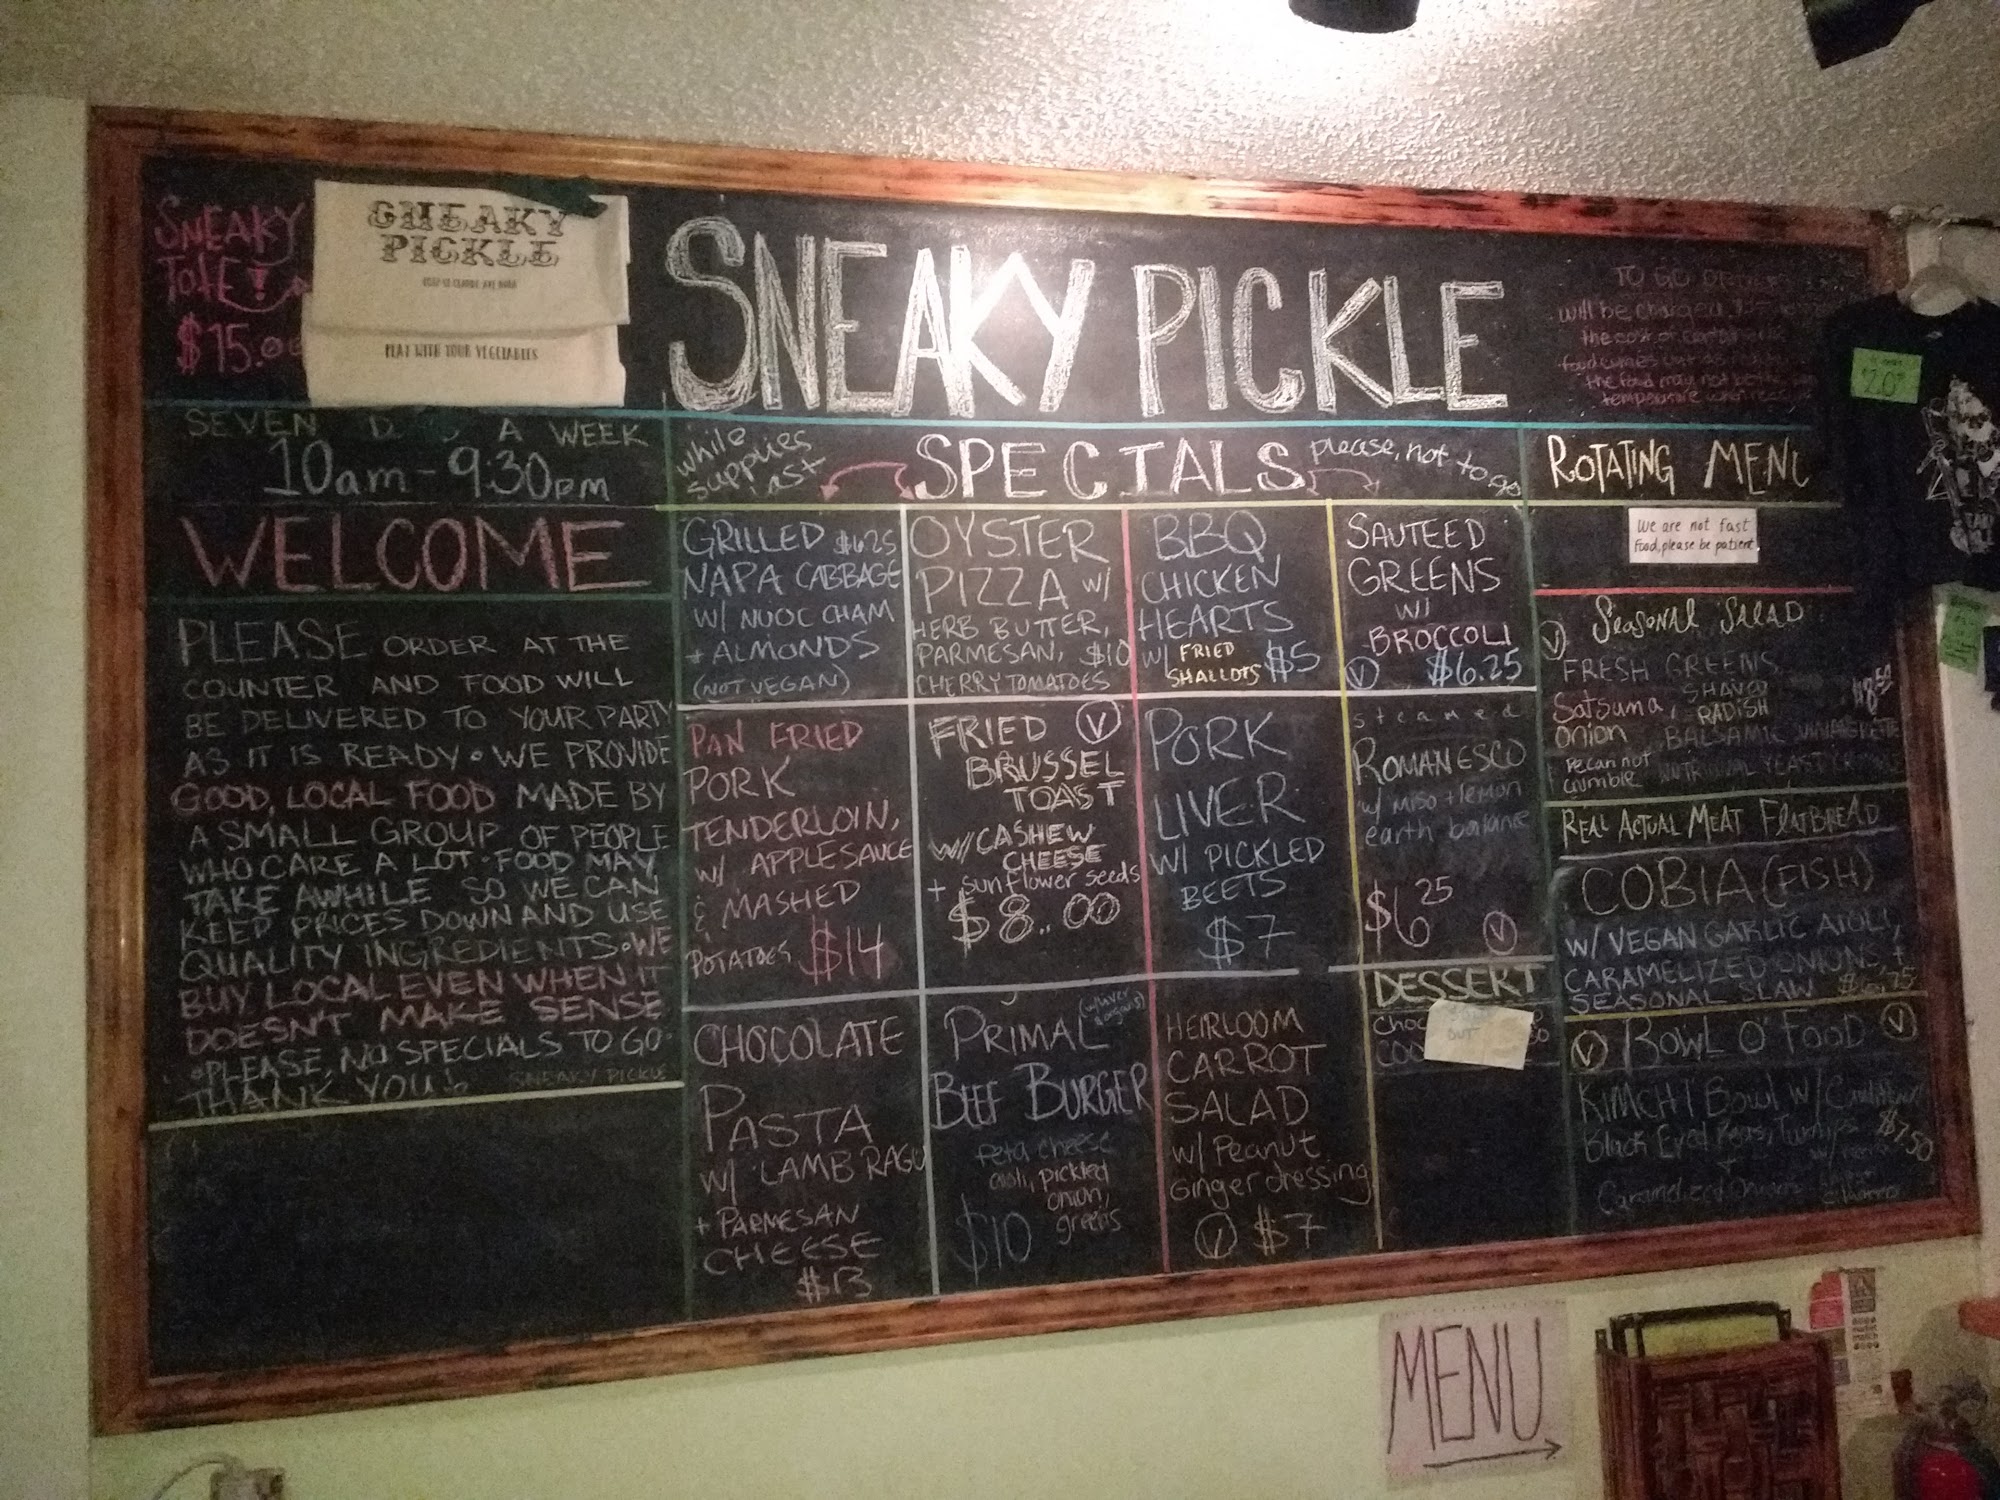 SNEAKY
TOTE!
$15.00
SNEAKY
PICKLE
PLAY WITH YOUR VEGETABLES
SNEAKY PICKLE
TO GO
will be charged
the cost of
food comes
the food may not be
temperature when
20
SEVEN A WEEK
10am-9:30pm
WELCOME
PLEASE ORDER AT THE
COUNTER AND FOOD WILL
BE DELIVERED TO YOUR PARTY
AS IT IS READY • WE PROVIDE
GOOD, LOCAL FOOD MADE BY
A SMALL GROUP OF PEOPLE
WHO CARE A LOT • FOOD MAY
TAKE AWHILE SO WE CAN
KEEP PRICES DOWN AND USE
QUALITY INGREDIENTS • WE
BUY LOCAL EVEN WHEN IT
DOESN'T MAKE SENSE
• PLEASE, NO SPECIALS TO GO •
THANK YOU! SNEAKY PICKLE
while
supplies
last
SPECIALS
please, not to go
GRILLED $6.25
NAPA CABBAGE
W/ NUOC CHAM
+ ALMONDS
(NOT VEGAN)
OYSTER
PIZZA W/
HERB BUTTER,
PARMESAN, $10
CHERRY TOMATOES
BBQ
CHICKEN
HEARTS
W/ FRIED
SHALLOTS $5
SAUTEED
GREENS
W/
BROCCOLI
V $6.25
PAN FRIED
PORK
TENDERLOIN,
W/ APPLESAUCE
& MASHED
POTATOES $14
FRIED V
BRUSSEL
TOAST
W/ CASHEW
CHEESE
+ sunflower seeds
$8.00
PORK
LIVER
W/ PICKLED
BEETS
$7
steamed
ROMANESCO
w/ miso + lemon
earth balance
$6.25 V
CHOCOLATE
PASTA
W/ LAMB RAGU
+ PARMESAN
CHEESE
$13
PRIMAL
BEEF BURGER
feta cheese
aioli, pickled
onion,
greens
$10
HEIRLOOM
CARROT
SALAD
w/ Peanut
Ginger dressing
V $7
DESSERT
OUT
ROTATING MENU
We are not fast
food, please be patient
V Seasonal Salad
FRESH GREENS
Satsuma, SHAVED
RADISH
onion BALSAMIC VINAIGRETTE
pecan nut
crumble NUTRITIONAL YEAST
$8.50
REAL ACTUAL MEAT FLATBREAD
COBIA (FISH)
W/ VEGAN GARLIC AIOLI,
CARAMELIZED ONIONS +
SEASONAL SLAW $6.75
V BOWL O' FOOD V
KIMCHI BOWL W/
Black Eyed Peas, Turnips $7.50
Caramelized Onions
MENU